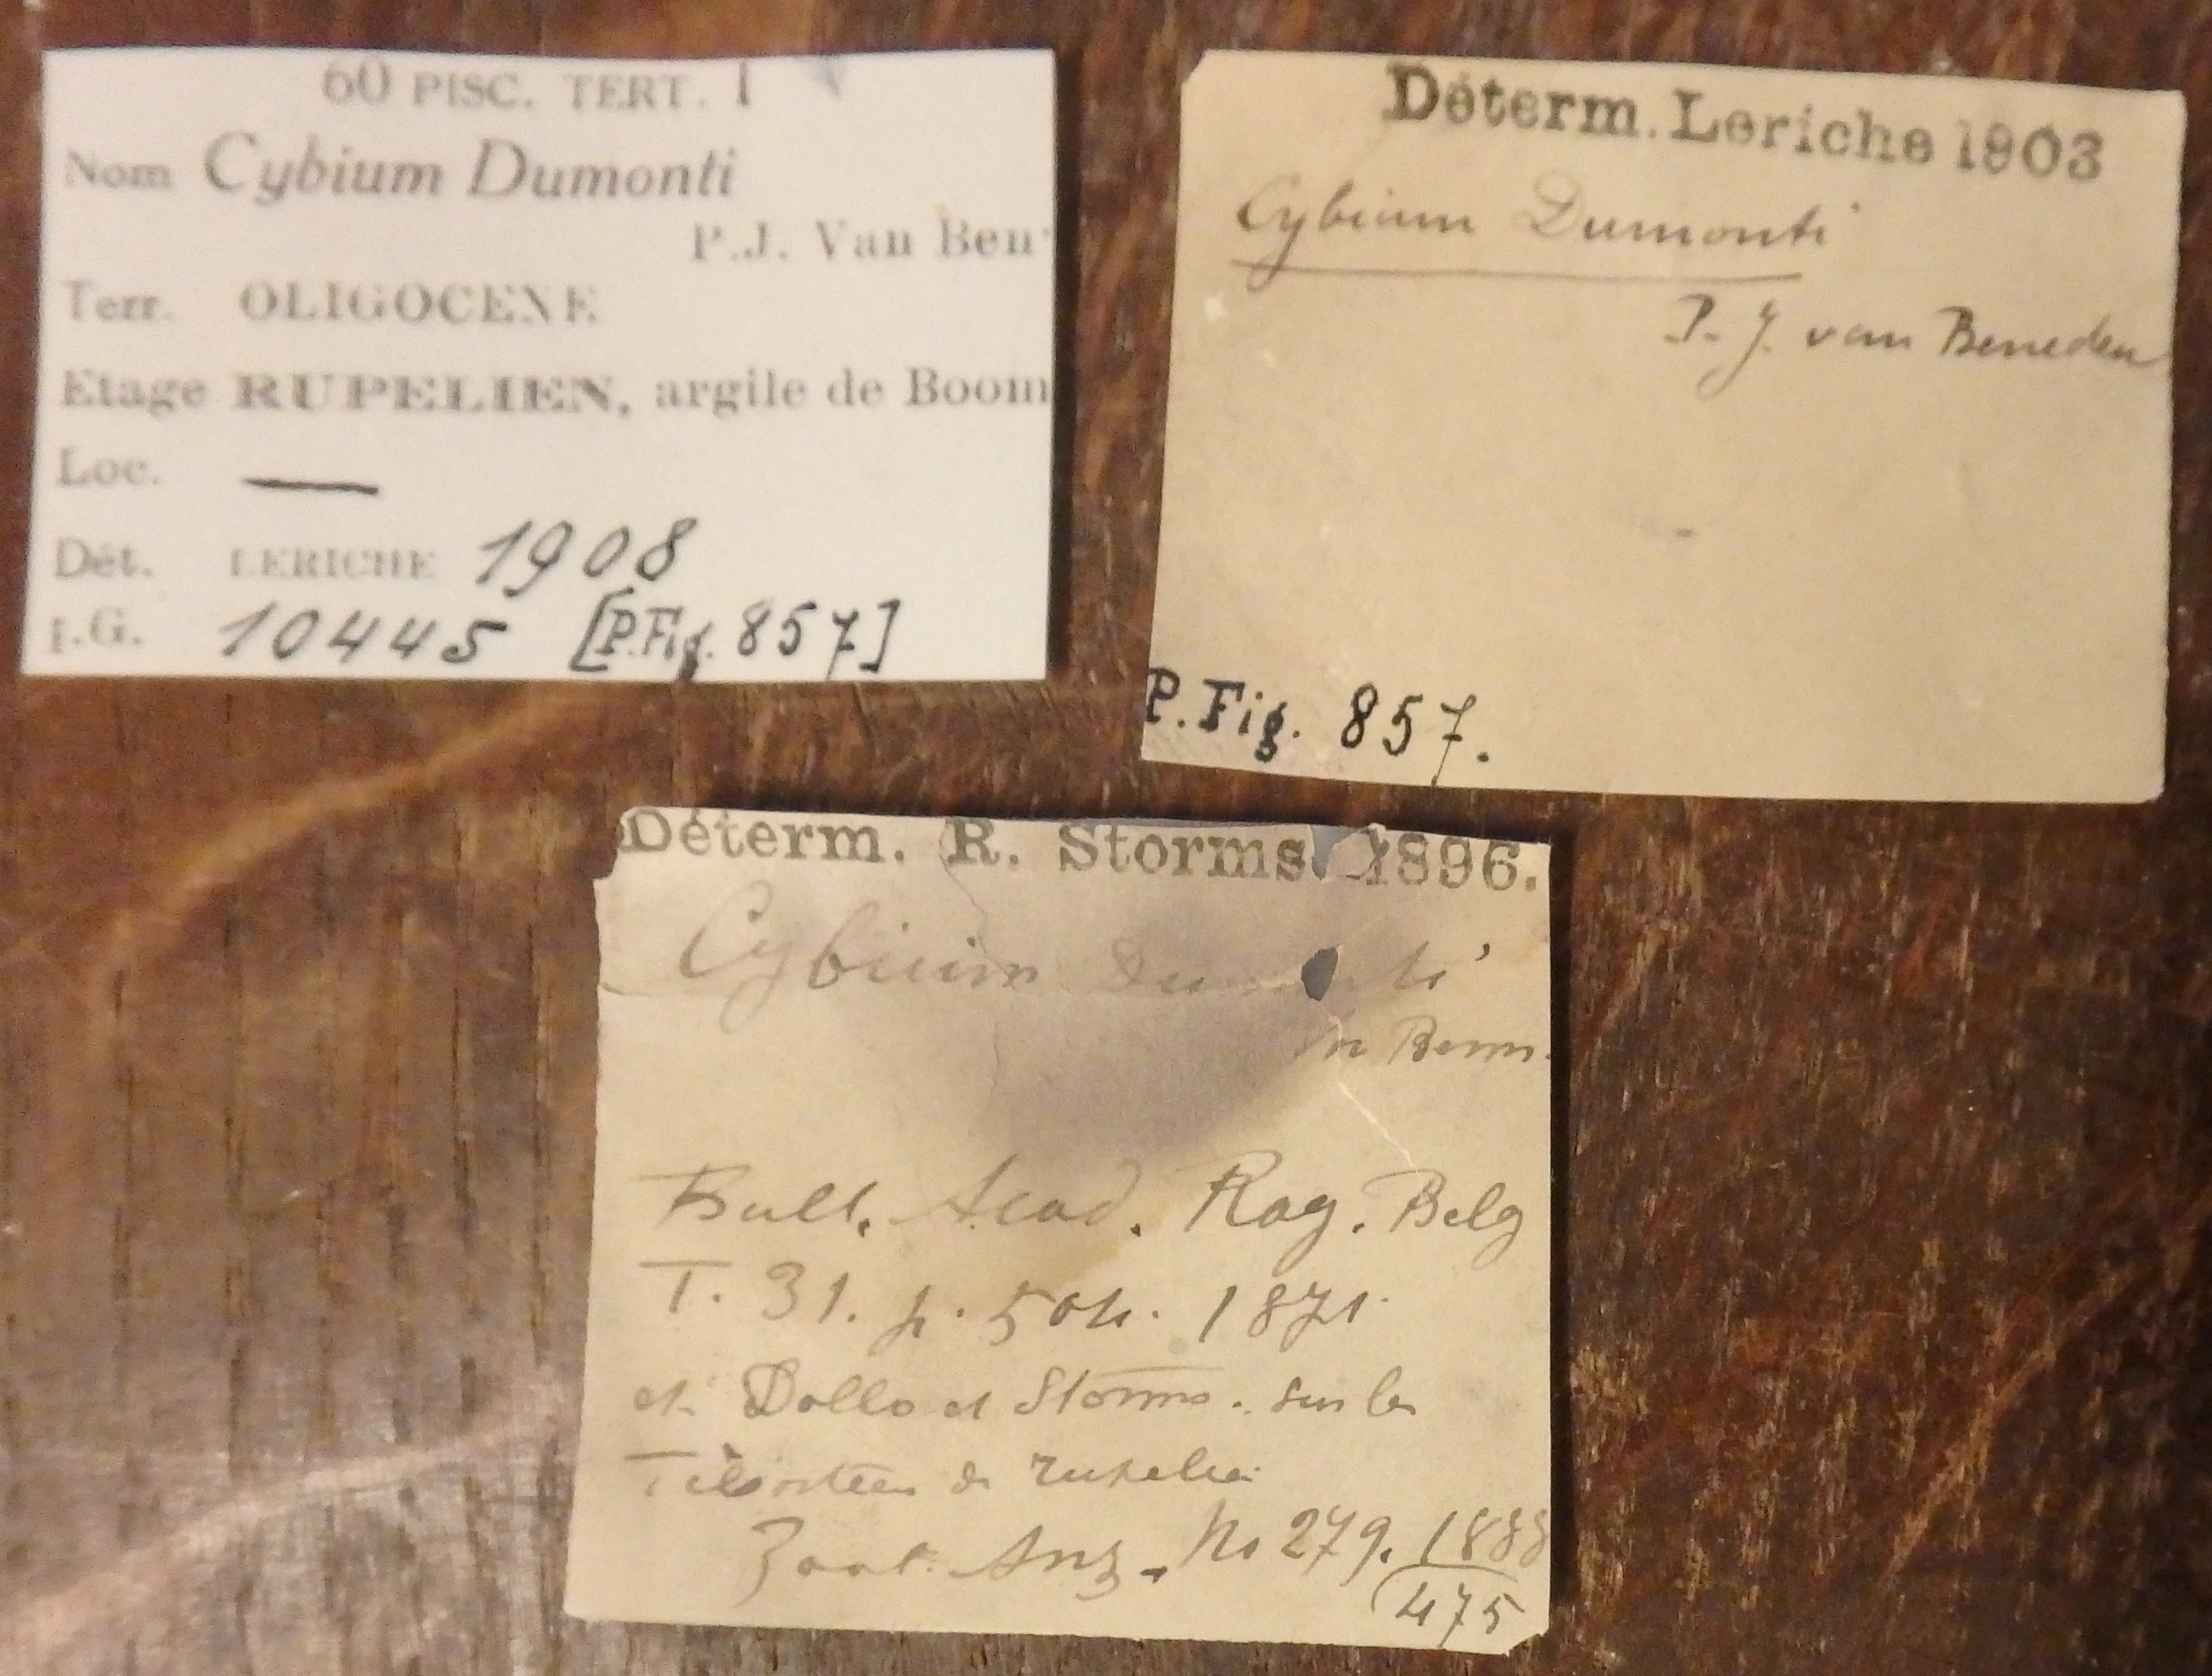 60 PISC. TERT. I
Nom Cybium Dumonti
P.J. Van Ben
Terr. OLIGOCENE
Etage RUPELIEN, argile de Boom
Loc. —
Dét. LERICHE 1908
I.G. 10445 [P.Fig. 857]
Déterm. Leriche 1903
Cybium Dumonti
P. J. van Beneden
P. Fig. 857.
Déterm. R. Storms 1896.
Cybium
Bull. Acad. Roy. Belg
T. 31. p. 504. 1871.
et Dollo et Storms. sur les
Téléostéens du rupelien
Zool. Anz. No 279. 1888
475